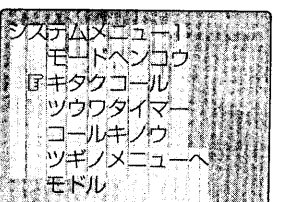 システムメニュー1
モードヘンコウ
☞キタクコール
ツウワタイマー
コールキノウ
ツギノメニューヘ
モドル